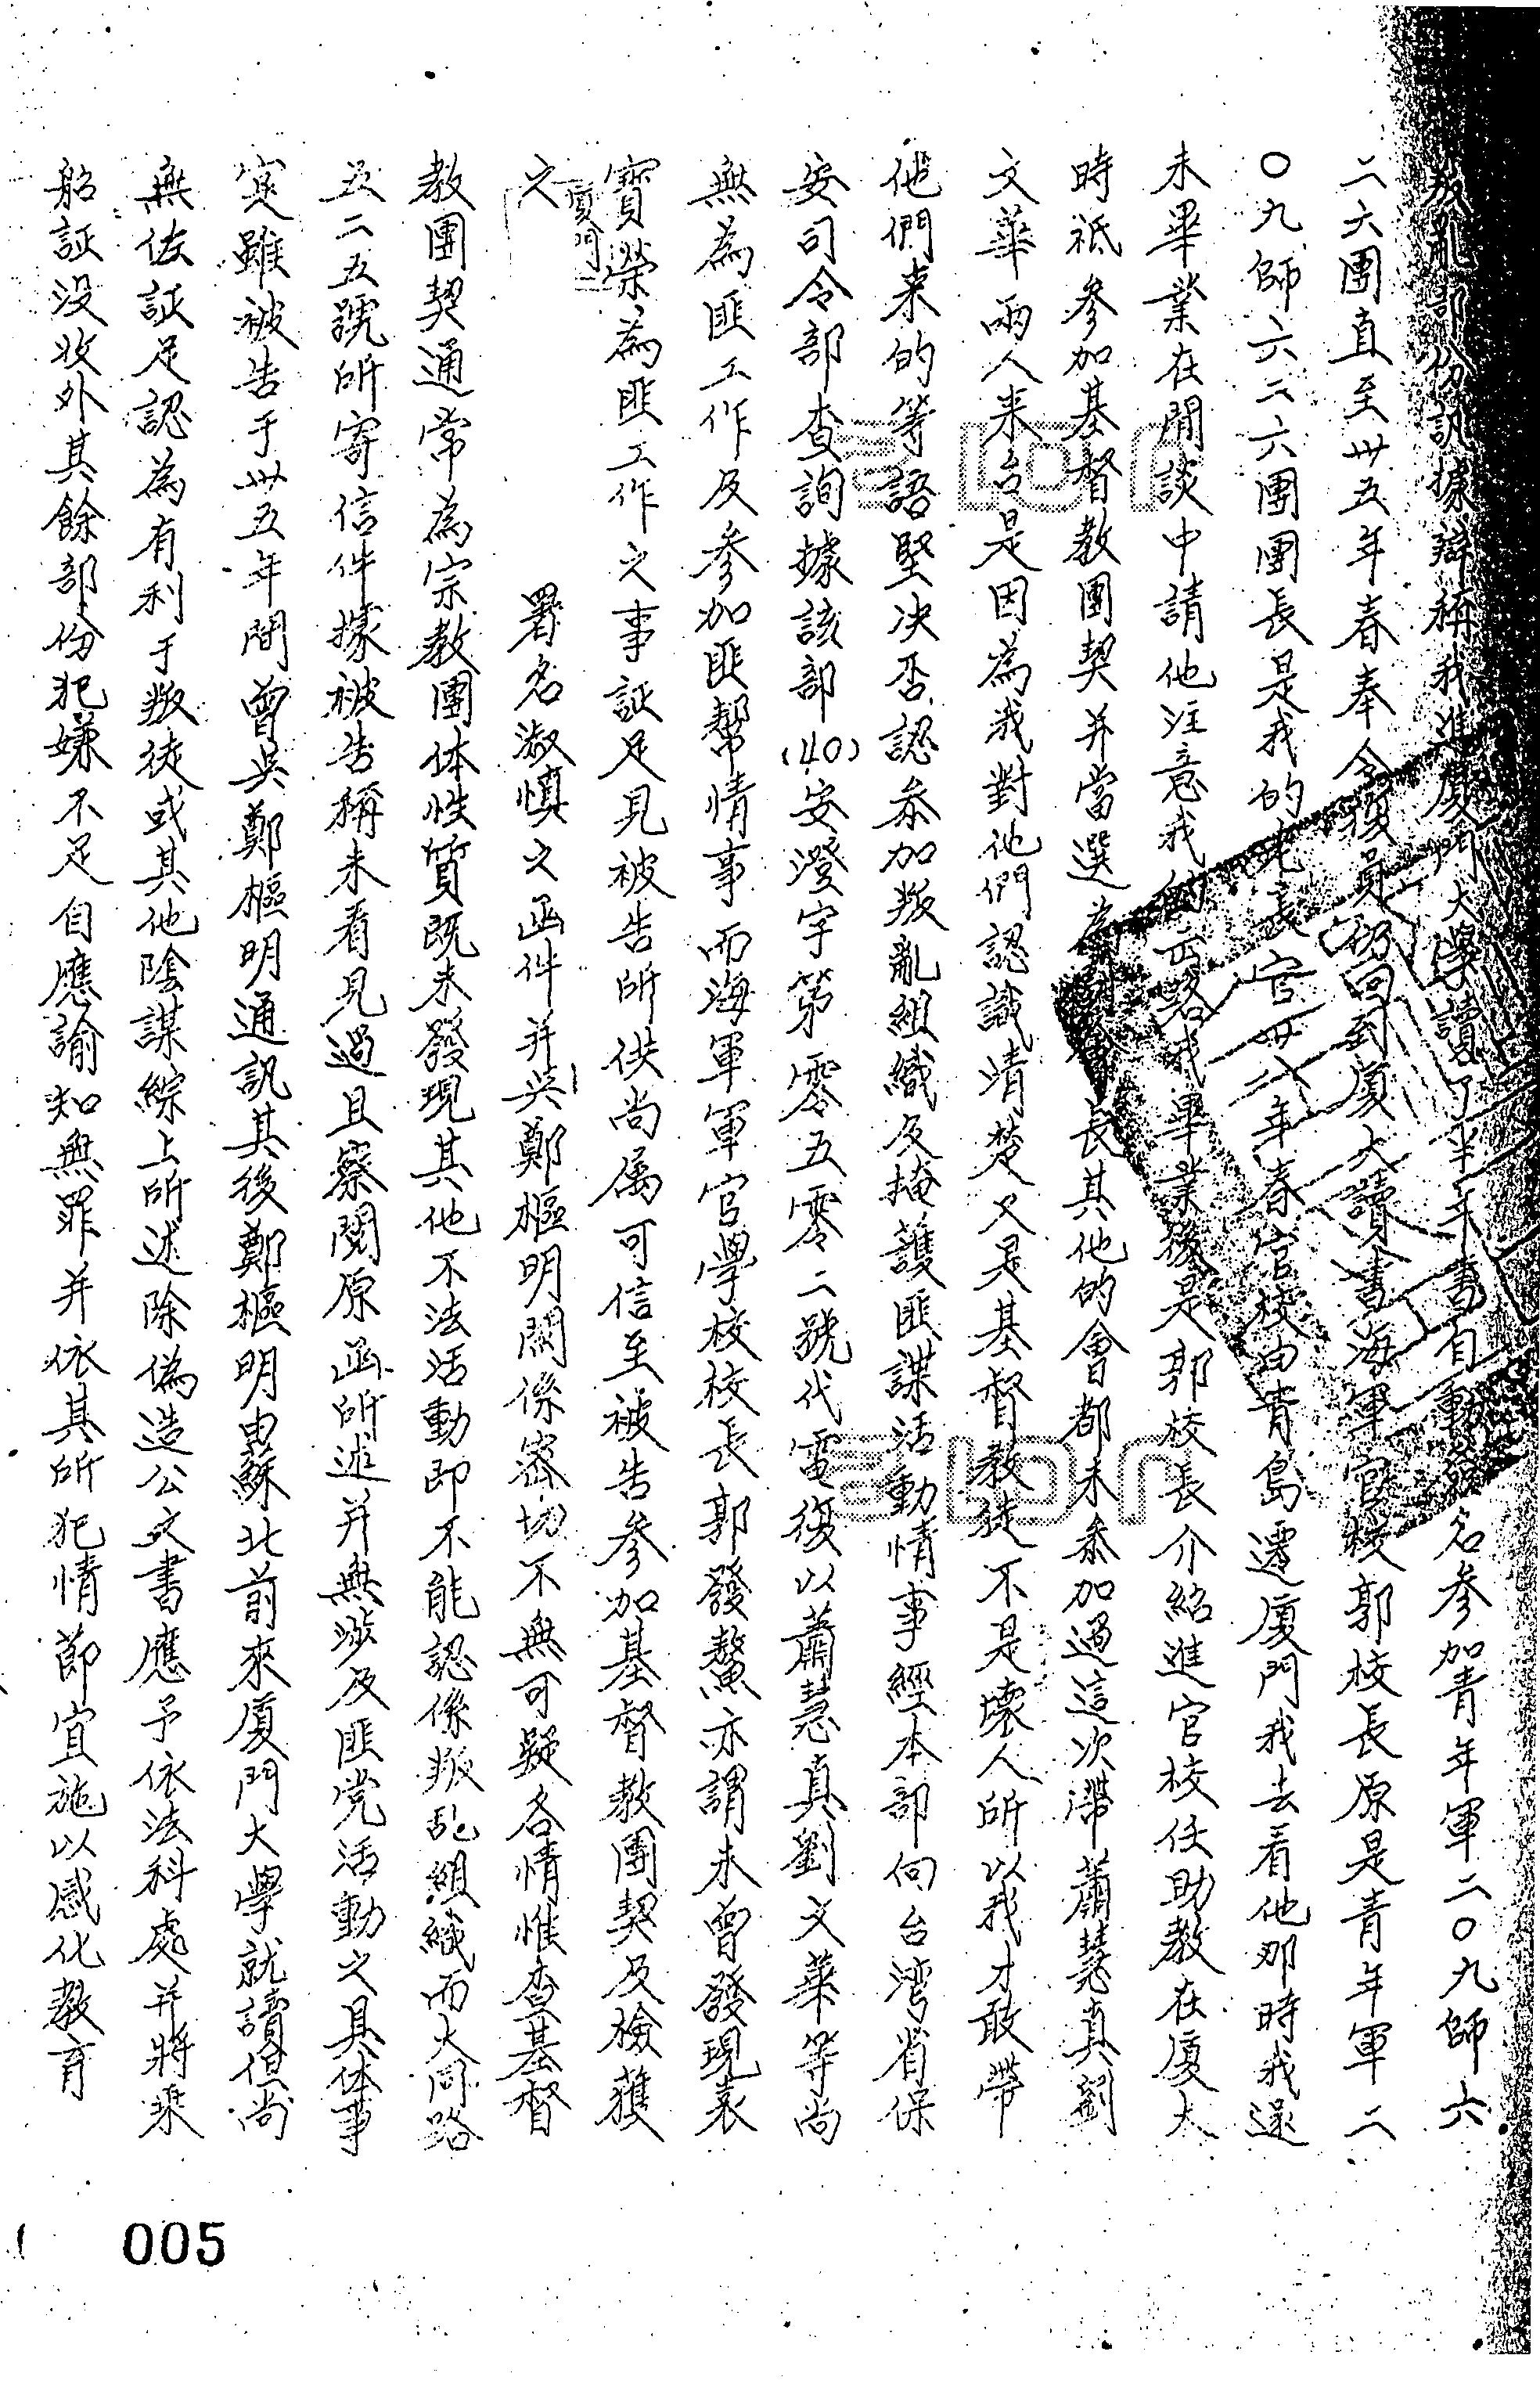 叛亂部份訊據辯稱我進廈門大學讀了半年書自動簽名參加青年軍二〇九師六
二六團直至卅五年春奉令復員仍回到廈大讀書海軍官校郭校長原是青年軍二
〇九師六二六團團長是我的老長官卅八年春官校由青島遷廈門我去看他那時我還
未畢業在閒談中請他注意我的出路我畢業後是郭校長介紹進官校任助教在廈大
時祇參加基督教團契并當選為副會長其他的會都未參加過這次帶蕭慧真劉
文華兩人來台是因為我對他們認識清楚又是基督教徒不是壞人所以我才敢帶
他們來的等語堅決否認參加叛亂組織及掩護匪諜活動情事經本部向台灣省保
安司令部查詢據該部(40)安澄字第零五零二號代電復以蕭慧真劉文華等尚
無為匪工作及參加匪幫情事而海軍軍官學校校長郭發鰲亦謂未曾發現袁
寶榮為匪工作之事証足見被告所供尚属可信至被告參加基督教團契及檢獲
廈門
之 署名淑慎之函件并與鄭樞明関係密切不無可疑各情惟查基督
教團契通常為宗教團体性質既未發現其他不法活動即不能認係叛乱組織而大同路
五二五號所寄信件據被告稱未看見過且察閱原函所述并無涉及匪党活動之具体事
寔雖被告于卅五年間曾與鄭樞明通訊其後鄭樞明由蘇北前來廈門大學就讀但尚
無佐証足認為有利于叛徒或其他陰謀綜上所述除偽造公文書應予依法科處并將乘
船証没收外其餘部份犯嫌不足自應諭知無罪并依其所犯情節宜施以感化教育
005